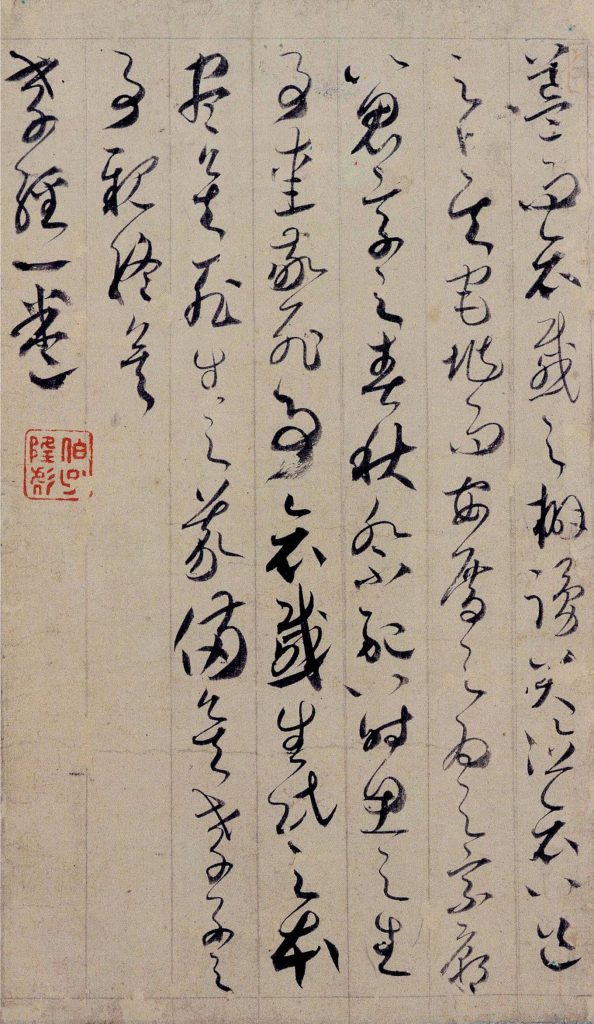 簋而哀戚之擗踊哭泣哀以送
之卜其宅兆而安厝之為之宗廟
以鬼享之春秋祭祀以時思之生
事愛敬死事哀戚生民之本
盡矣死生之義備矣孝子之
事親終矣
孝經一卷